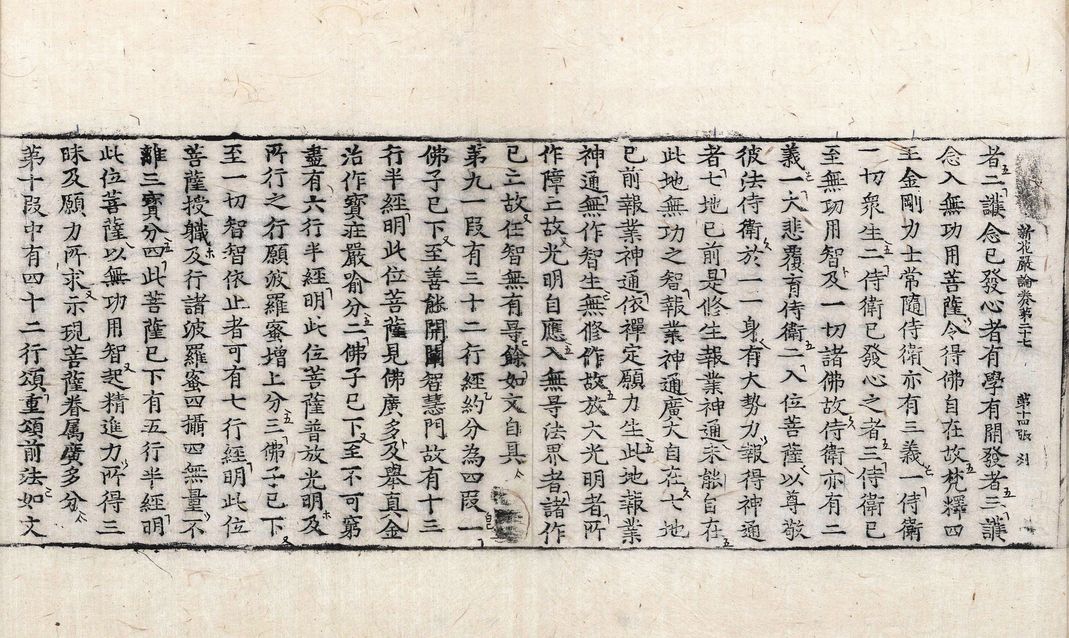 新花嚴論卷第二十七 第十四張 列
者二護念已發心者有學有開發者三護
念入無功用菩薩令得佛自在故梵釋四
王金剛力士常隨侍衛亦有三義一侍衛
一切衆生二侍衛已發心之者三侍衛已
至無功用智及一切諸佛故侍衛亦有二
義一大悲覆育侍衛二入位菩薩以尊敬
彼法侍衛於一一身有大勢力報得神通
者七地已前是修生報業神通未能自在
此地無功之智報業神通廣大自在七地
已前報業神通依禪定願力生此地報業
神通無作智生無修作故放大光明者所
作障亡故光明自應入無㝵法界者諸作
已亡故任智無有㝵餘如文自具
第九一段有三十二行經約分為四段一
佛子已下至善能開闡智慧門故有十三
行半經明此位菩薩見佛廣多及舉真金
治作寶莊嚴喻分二佛子已下至不可窮
盡有六行半經明此位菩薩普放光明及
所行之行願波羅蜜增上分三佛子已下
至一切智智依止者可有七行經明此位
菩薩授職及行諸波羅蜜四攝四無量不
離三寶分四此菩薩已下有五行半經明
此位菩薩以無功用智起精進力所得三
昧及願力所求示現菩薩眷属廣多分
第十段中有四十二行頌重頌前法如文